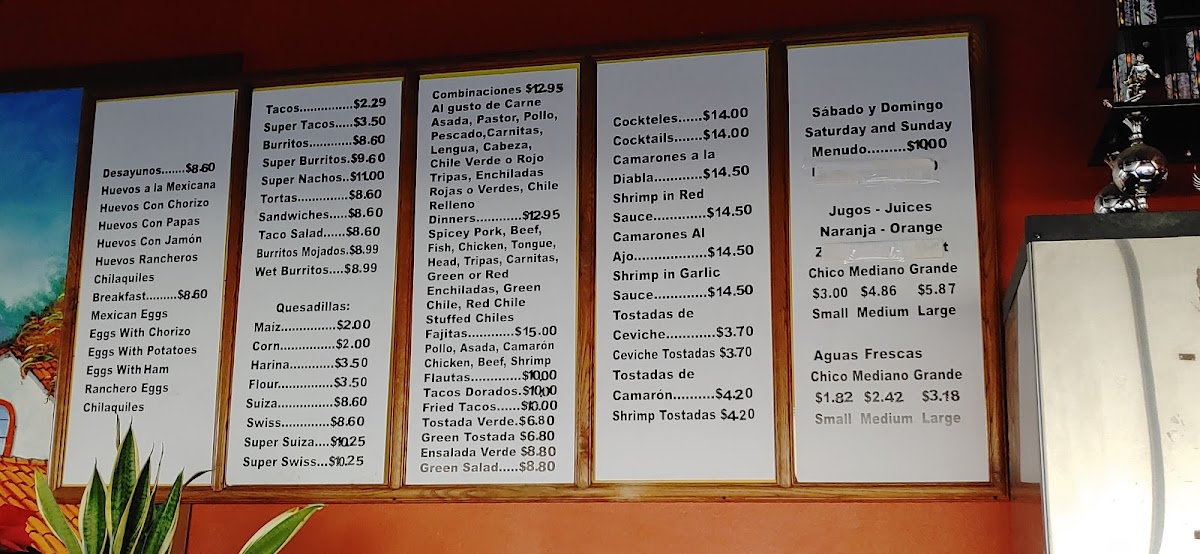 Desayunos.......$8.60
Huevos a la Mexicana
Huevos Con Chorizo
Huevos Con Papas
Huevos Con Jamón
Huevos Rancheros
Chilaquiles
Breakfast.........$8.60
Mexican Eggs
Eggs With Chorizo
Eggs With Potatoes
Eggs With Ham
Ranchero Eggs
Chilaquiles
Tacos...............$2.29
Super Tacos.....$3.50
Burritos............$8.60
Super Burritos.$9.60
Super Nachos..$11.00
Tortas..............$8.60
Sandwiches.....$8.60
Taco Salad......$8.60
Burritos Mojados.$8.99
Wet Burritos....$8.99
Quesadillas:
Maíz...............$2.00
Corn...............$2.00
Harina.............$3.50
Flour...............$3.50
Suiza...............$8.60
Swiss..............$8.60
Super Suiza....$10.25
Super Swiss...$10.25
Combinaciones $12.95
Al gusto de Carne
Asada, Pastor, Pollo,
Pescado,Carnitas,
Lengua, Cabeza,
Chile Verde o Rojo
Tripas, Enchiladas
Rojas o Verdes, Chile
Relleno
Dinners............$12.95
Spicey Pork, Beef,
Fish, Chicken, Tongue,
Head, Tripas, Carnitas,
Green or Red
Enchiladas, Green
Chile, Red Chile
Stuffed Chiles
Fajitas............$15.00
Pollo, Asada, Camarón
Chicken, Beef, Shrimp
Flautas.............$10.00
Tacos Dorados.$10.00
Fried Tacos......$10.00
Tostada Verde.$6.80
Green Tostada $6.80
Ensalada Verde $8.80
Green Salad.....$8.80
Cockteles......$14.00
Cocktails......$14.00
Camarones a la
Diabla............$14.50
Shrimp in Red
Sauce.............$14.50
Camarones Al
Ajo..................$14.50
Shrimp in Garlic
Sauce.............$14.50
Tostadas de
Ceviche...........$3.70
Ceviche Tostadas $3.70
Tostadas de
Camarón..........$4.20
Shrimp Tostadas $4.20
Sábado y Domingo
Saturday and Sunday
Menudo.........$10.00
Jugos - Juices
Naranja - Orange
Chico Mediano Grande
$3.00 $4.86 $5.87
Small Medium Large
Aguas Frescas
Chico Mediano Grande
$1.82 $2.42 $3.18
Small Medium Large